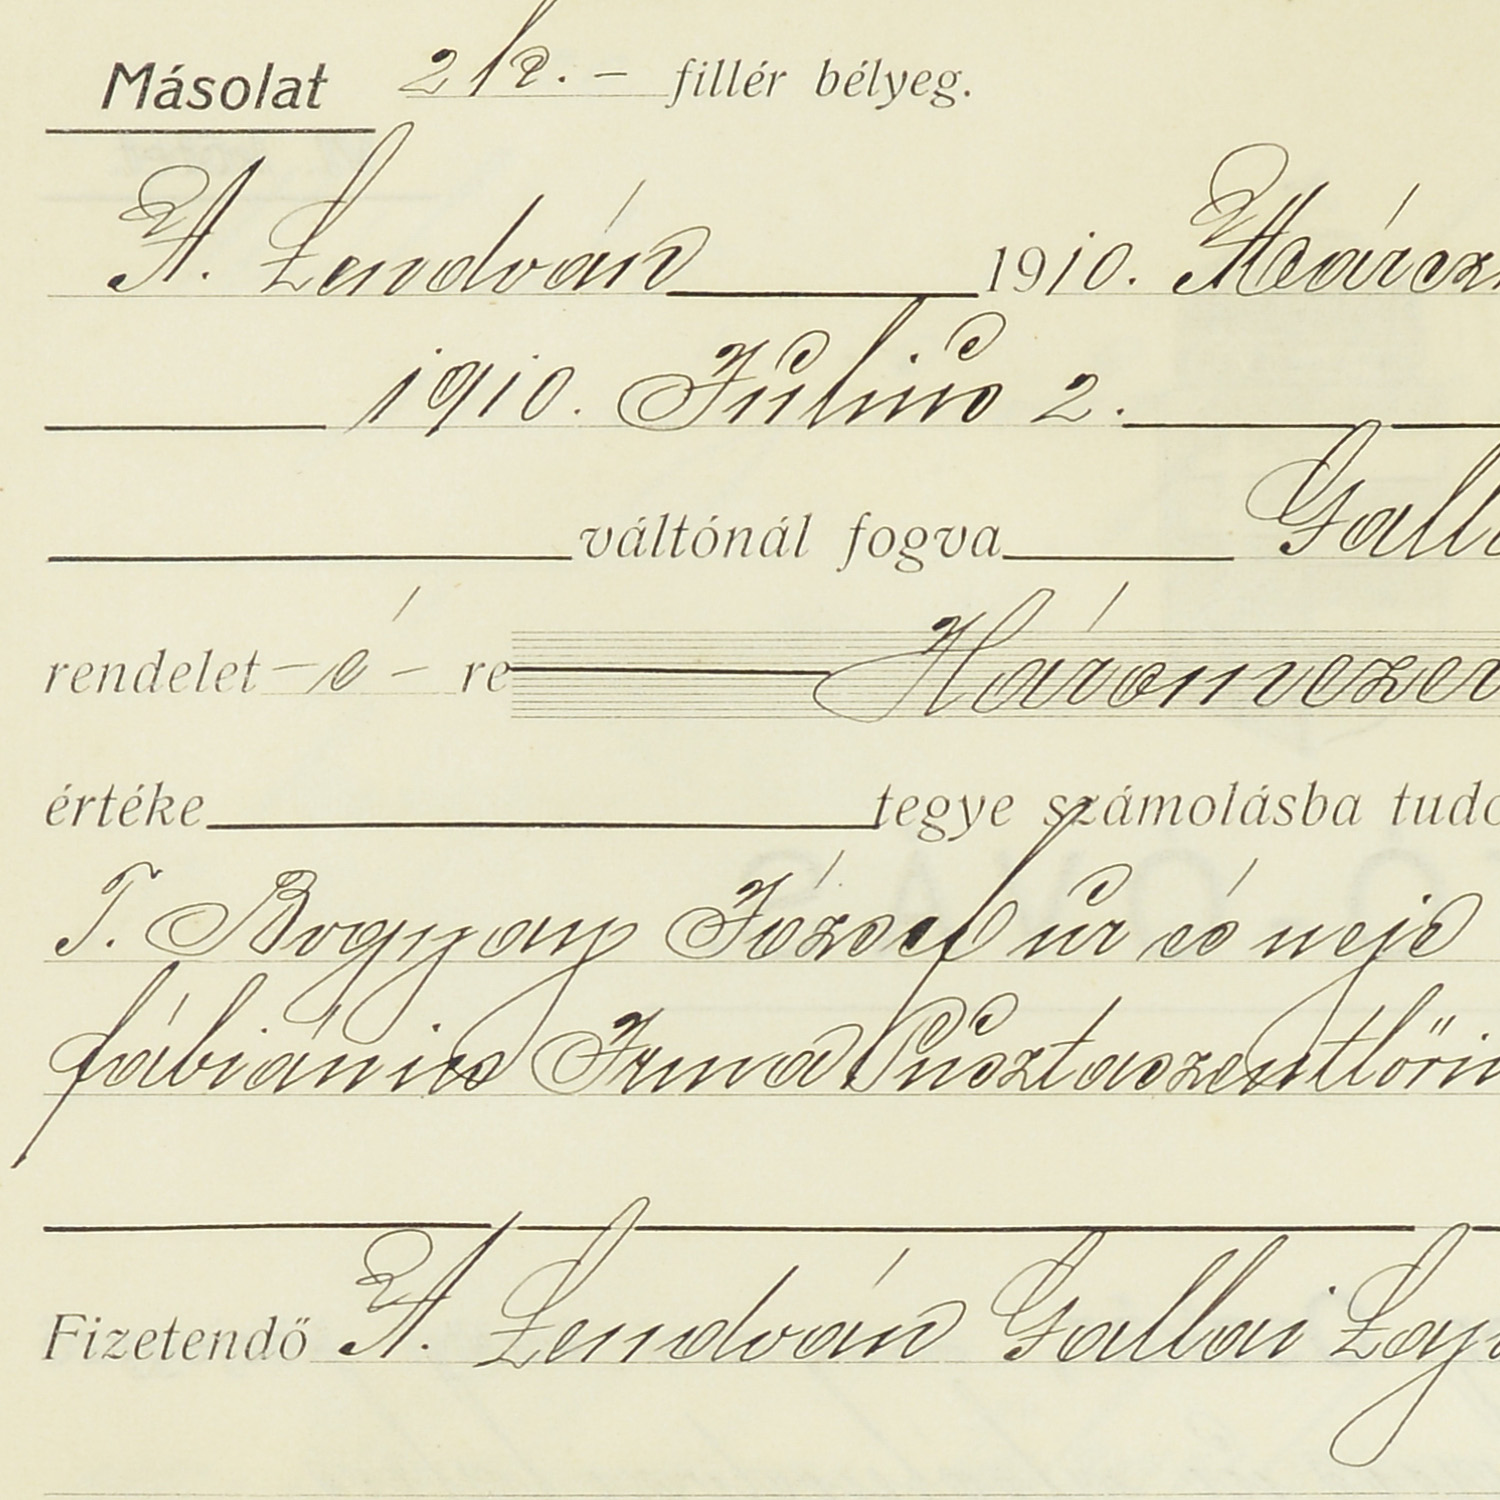 Másolat 2 k. – fillér bélyeg.
A. Lendván 1910. Márcz
1910. Július 2.
váltónál fogva Gall
rendelet – é – re Háromezer
értéke tegye számolásba tudó
T. Bogyay József úr és neje
fábiánics Irma Pusztaszentlőrin
Fizetendő A. Lendván Gallai Laj